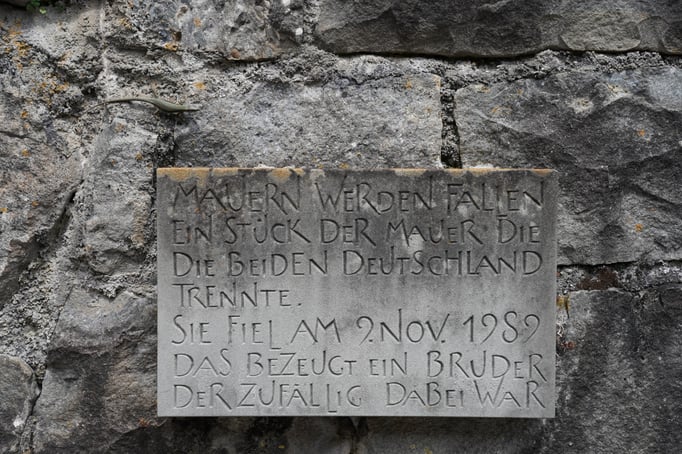 MAUERN WERDEN FALLEN
EIN STÜCK DER MAUER DIE
DIE BEIDEN DEUTSCHLAND
TRENNTE.
SIE FIEL AM 9.NOV. 1989
DAS BEZEUGT EIN BRUDER
DER ZUFÄLLIG DABEI WAR